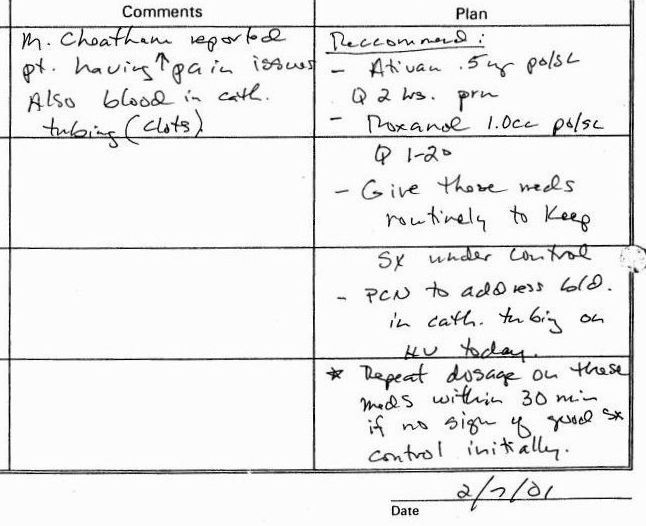 Comments
M. Cheatham reported
pt. having ↑ pain issues
Also blood in cath.
tubing (clots)
Plan
Reccommend:
- Ativan .5mg po/sl
Q 2 hrs. prn
- Roxanol 1.0cc po/sl
Q 1-2°
- Give these meds
routinely to keep
Sx under control
- PCN to address bld.
in cath. tubing on
HV today.
* Repeat dosage on these
meds within 30 min
if no sign of good Sx
control initially.
2/7/01
Date